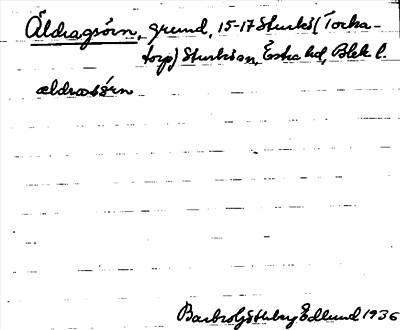 Äldragsörn, grund, 15-17 Sturkö (Tocka-
torp) Sturkö sn, Östra hd, Blek l.
ældrasörn
Barbro Götlberg Edlund 1936